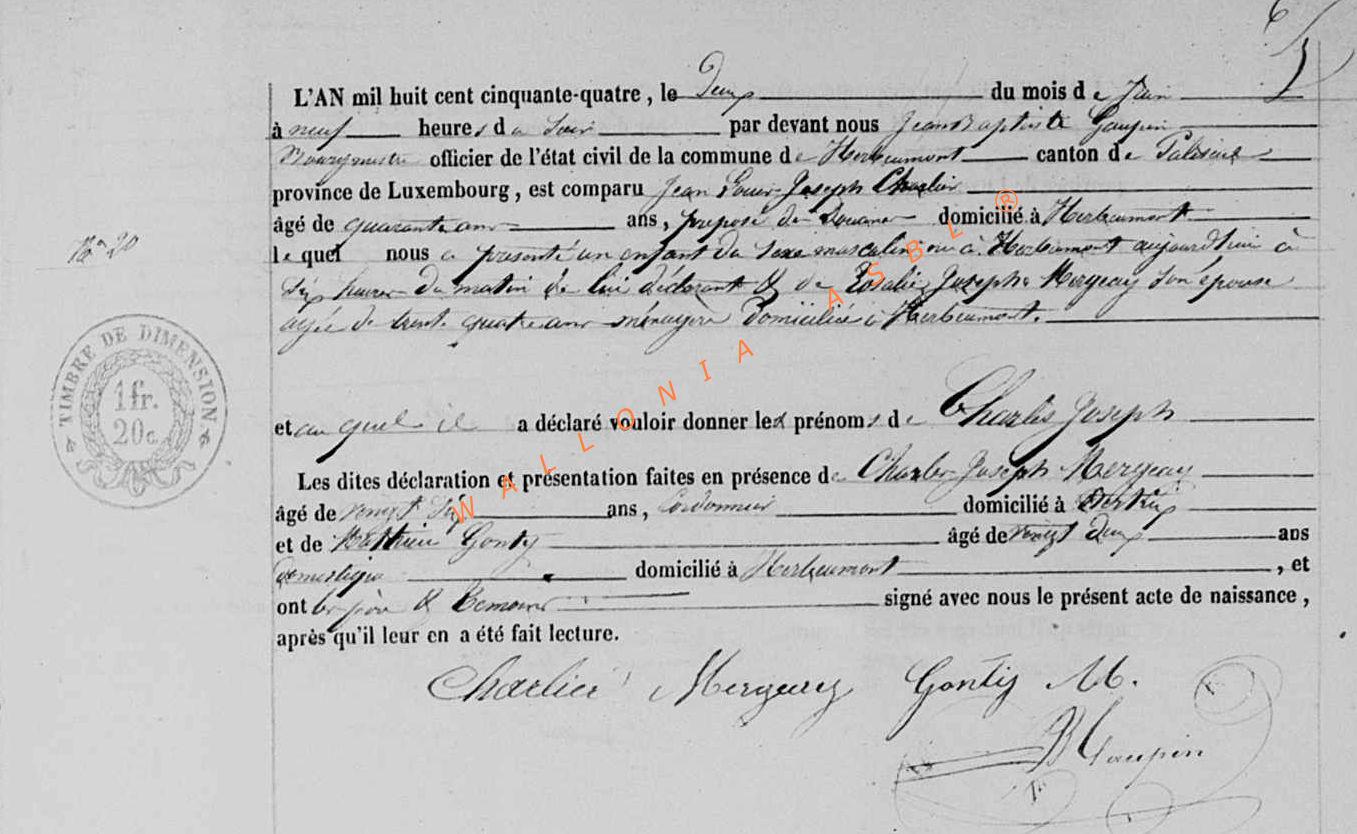 N° 20
TIMBRE DE DIMENSION
1 fr.
20 c.
L'AN mil huit cent cinquante-quatre, le Deux du mois de Juin
à neuf heures du Soir par devant nous Jean Baptiste Goupin
Bourgmestre officier de l'état civil de la commune de Herbeumont canton de Paliseul
province de Luxembourg, est comparu Jean Louis Joseph Charlier
âgé de quarante ans ans, préposé de Douanes domicilié à Herbeumont
lequel nous a présenté un enfant du sexe masculin né à Herbeumont aujourdhui à
Dix heures du matin de lui déclarant & de Rosalie Josephe Mergeay son épouse
agée de trente quatre ans ménagère domiciliée à Herbeumont.
et au quel il a déclaré vouloir donner les prénoms de Charles Joseph
Les dites déclaration et présentation faites en présence de Charles Joseph Mergeay
âgé de vingt ans, Cordonnier domicilié à Bertrix
et de Mathieu Gonty âgé de vingt Deux ans
domestique domicilié à Herbeumont, et
ont les père & témoins signé avec nous le présent acte de naissance,
après qu'il leur en a été fait lecture.
Charlier Mergeay Gonty M.
Goupin
WALLONIA ASBL ®